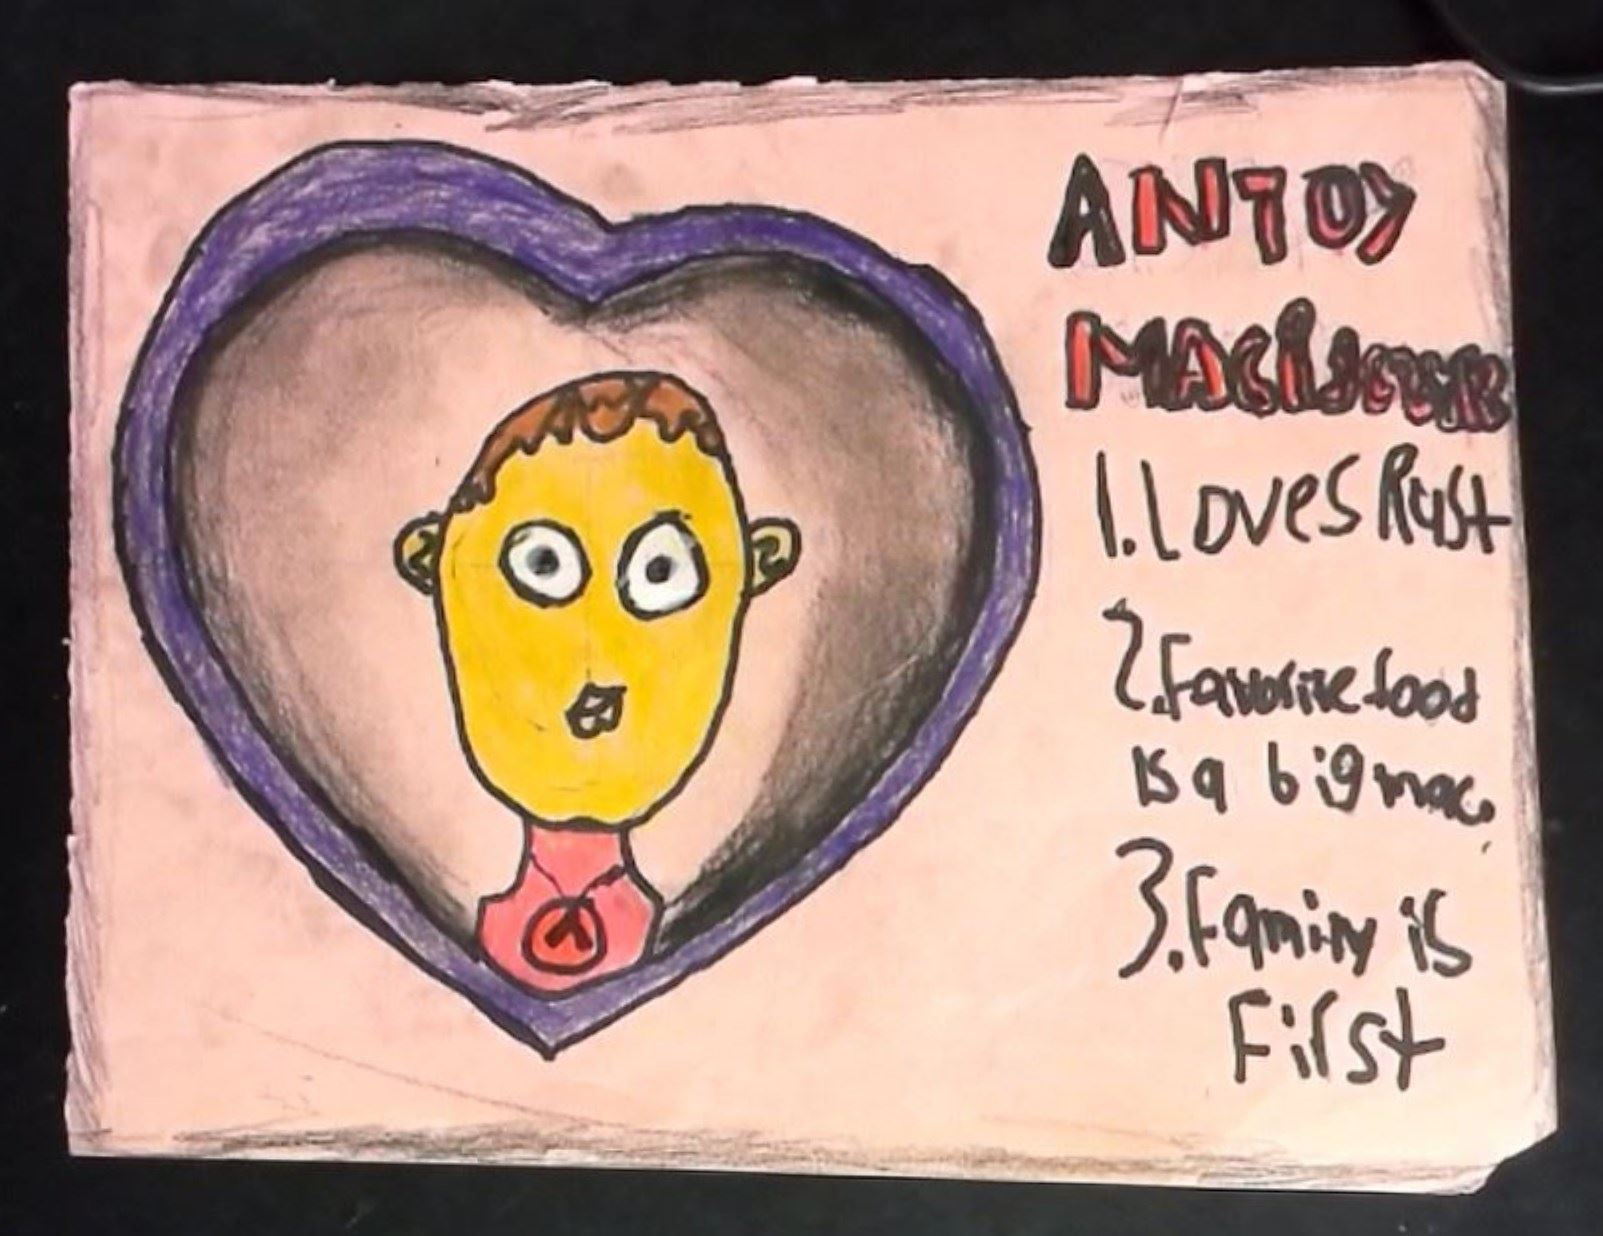 ANTOY
1. Loves Rust
2. Favorite food
is a big mac.
3. Family is
First